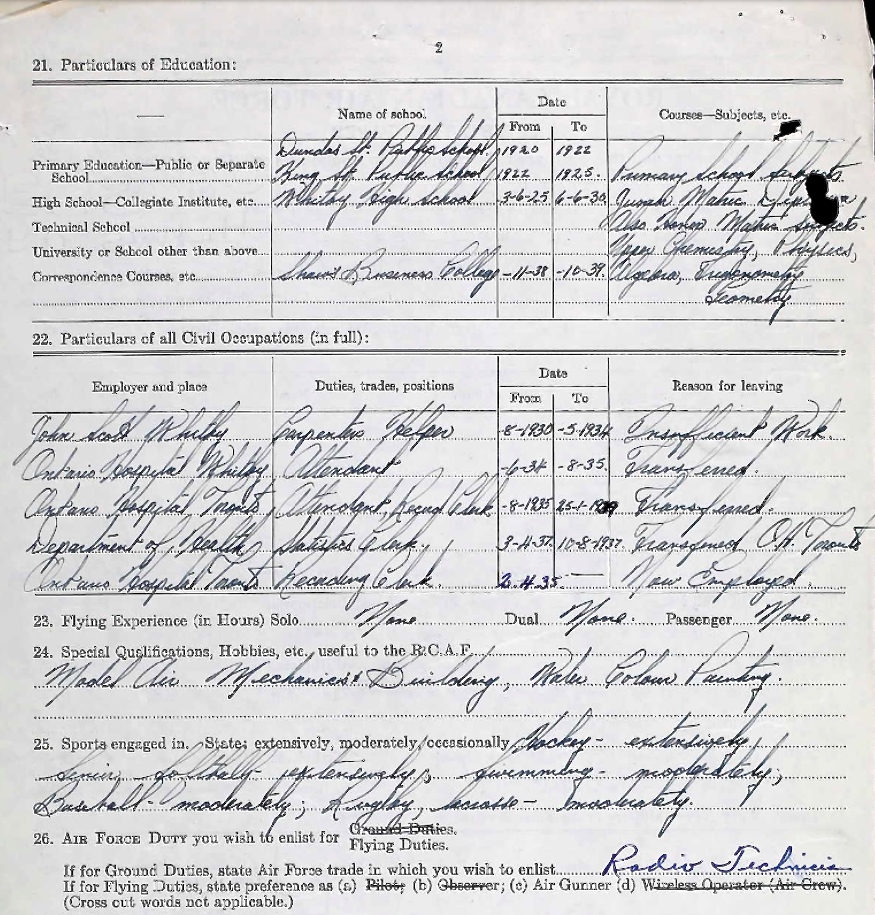 2
21. Particulars of Education:
— Name of school. Date Courses—Subjects, etc.
From To
Dundas St. Public School 1920 1922
Primary Education—Public or Separate
School King St. Public School 1922 1925. Primary School Subjects.
High School—Collegiate Institute, etc. Whitby High School 3-6-25 6-6-30. Junior Matric
Technical School Also Honor Matric Subjects.
University or School other than above Upper Chemistry, Physics,
Correspondence Courses, etc. Shaws Business College -11-38 -10-39. Algebra, Trigonometry
Geometry
22. Particulars of all Civil Occupations (in full):
Employer and place Duties, trades, positions Date Reason for leaving
From To
John Scott Whitby Carpenters Helper -8-1930 -5-1934 Insufficient Work.
Ontario Hospital Whitby Attendant -6-34 -8-35. Transferred.
Ontario Hospital Toronto Attendant, Record Clerk -8-1935 25-1- Transferred.
Department of Health Statistics Clerk. 3-4-37. 10-8-1937. Transferred O.H. Toronto
Ontario Hospital Toronto Recording Clerk. 2.4.35. — Now Employed.
23. Flying Experience (in Hours) Solo None Dual None. Passenger None.
24. Special Qualifications, Hobbies, etc., useful to the R.C.A.F.
Model Air Mechanics & Building, Water Colour Painting.
25. Sports engaged in. State; extensively, moderately, occasionally Hockey- extensively,
Softball- extensively, swimming- moderately;
Baseball- moderately; Rugby, lacrosse- moderately.
26. AIR FORCE DUTY you wish to enlist for Ground Duties.
Flying Duties.
If for Ground Duties, state Air Force trade in which you wish to enlist Radio Technicia
If for Flying Duties, state preference as (a) Pilot; (b) Observer; (c) Air Gunner (d) Wireless Operator (Air Crew).
(Cross out words not applicable.)